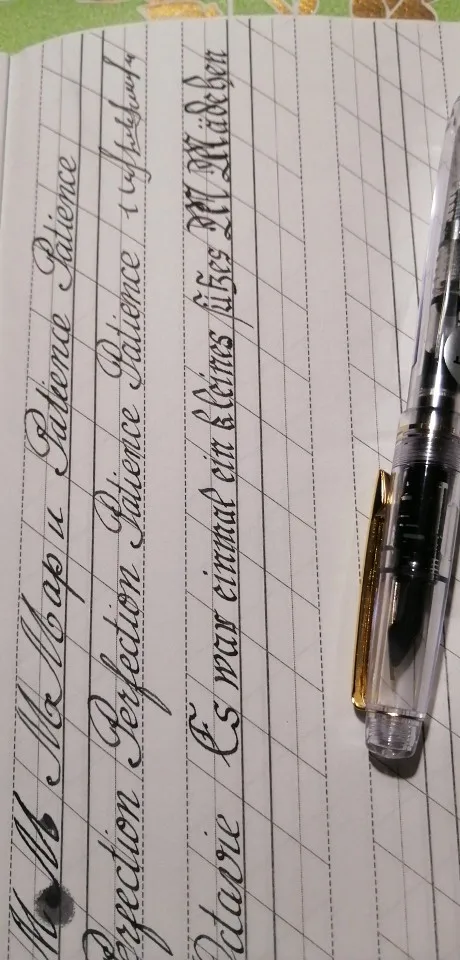 M M M Map u Patience Patience
Perfection Perfection Patience Patience
Es war einmal ein kleines süßes M Mädchen